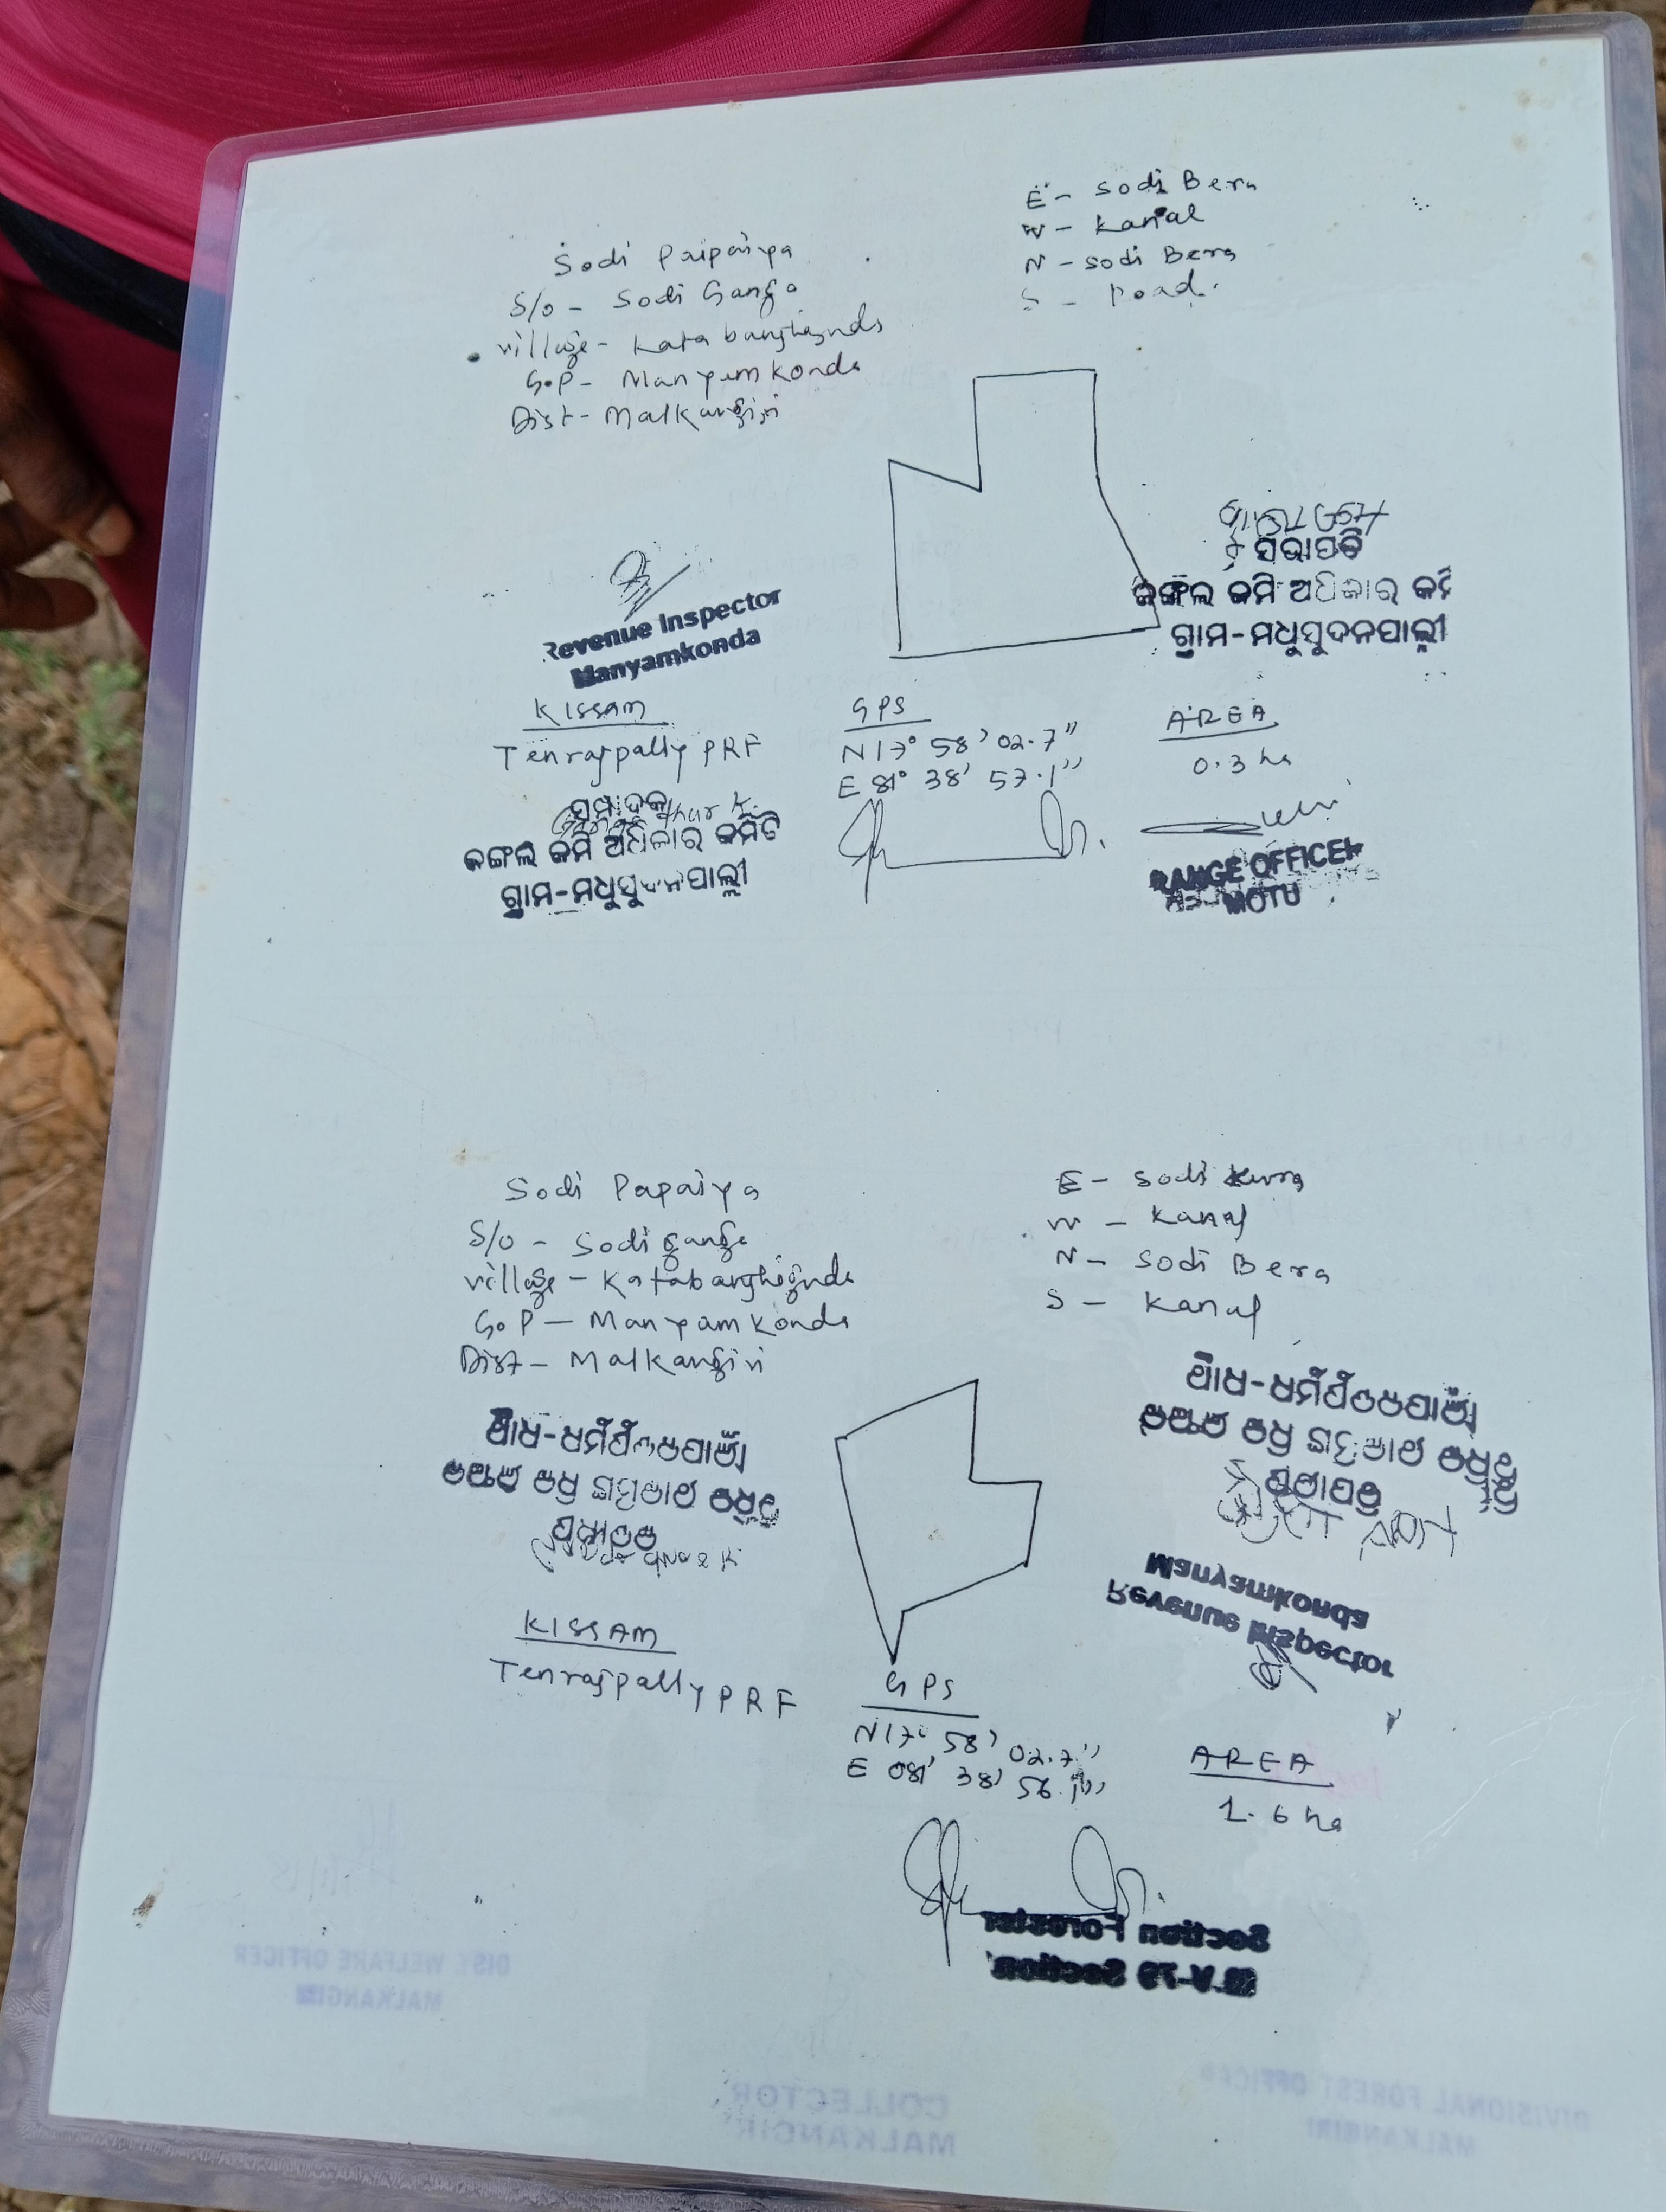 Sodi Paipaiya
S/o - Sodi Ganga
village - Katabanghagunda
G.P - Manyemkonda
Dist - Malkangiri
E - Sodi Bera
W - Kanal
N - Sodi Bera
S - Road.
Revenue Inspector
Manyamkonda
ସଭାପତି
ଜଙ୍ଗଲ ଜମି ଅଧିକାର କମି
ଗ୍ରାମ-ମଧୁସୁଦନପାଲ୍ଲୀ
KISSAM
Tenrajpally PRF
GPS
N 17° 58' 02.7"
E 81° 38' 57.1"
AREA
0.3 ha
ସମ୍ପାଦକ
ଜଙ୍ଗଲ ଜମି ଅଧିକାର କମିଟି
ଗ୍ରାମ-ମଧୁସୁଦନପାଲ୍ଲୀ
RANGE OFFICER
MOTU
Sodi Papaiya
S/o - Sodi gange
village - Katabanghagunda
G.P - Manyamkonda
Dist - Malkangiri
E - Sodi
W - Kanal
N - Sodi Bera
S - Kanal
ଗ୍ରାମ-ମଧୁସୁଦନପାଲ୍ଲୀ
ଜଙ୍ଗଲ ଜମି ଅଧିକାର କମିଟି
ସମ୍ପାଦକ
ଗ୍ରାମ-ମଧୁସୁଦନପାଲ୍ଲୀ
ଜଙ୍ଗଲ ଜମି ଅଧିକାର କମିଟି
ସଭାପତି
Manyamkonda
Revenue Inspector
KISSAM
Tenrajpally PRF
GPS
N 17° 58' 02.7"
E 081° 38' 56.1"
AREA
1.6 ha
Section Forester
M.V-79 Section
DIST. WELFARE OFFICER
MALKANGIRI
COLLECTOR
MALKANGIRI
DIVISIONAL FOREST OFFICER
MALKANGIRI